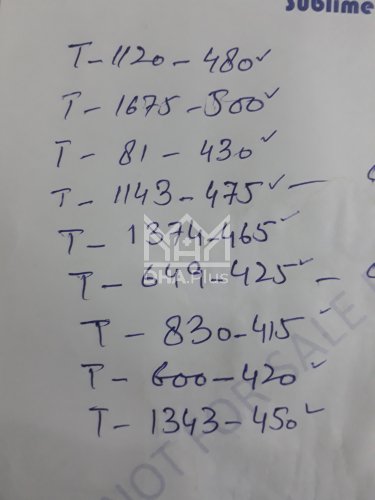 Sublime
T - 1120 - 480 ✓
T - 1675 - 500 ✓
T - 81 - 430 ✓
T - 1143 - 475 ✓ -
T - 1374 - 465 ✓
T - 649 - 425 ✓ -
T - 830 - 415 ✓
T - 600 - 420 ✓
T - 1343 - 450 ✓
DHA.Plus
NOT FOR SALE